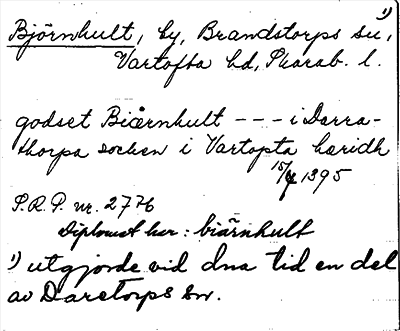 Björnhult, by, Brandstorps sn, 1)
Vartofta hd, Skarab. l.
godset Biærnhult - - - i Darra-
thorpa socken i Vartopta hæridh
15/4 1395
S.R.P. nr. 2776
Diplomet har: biärnhult
1) utgjorde vid dna tid en del
av Daretorps sn.